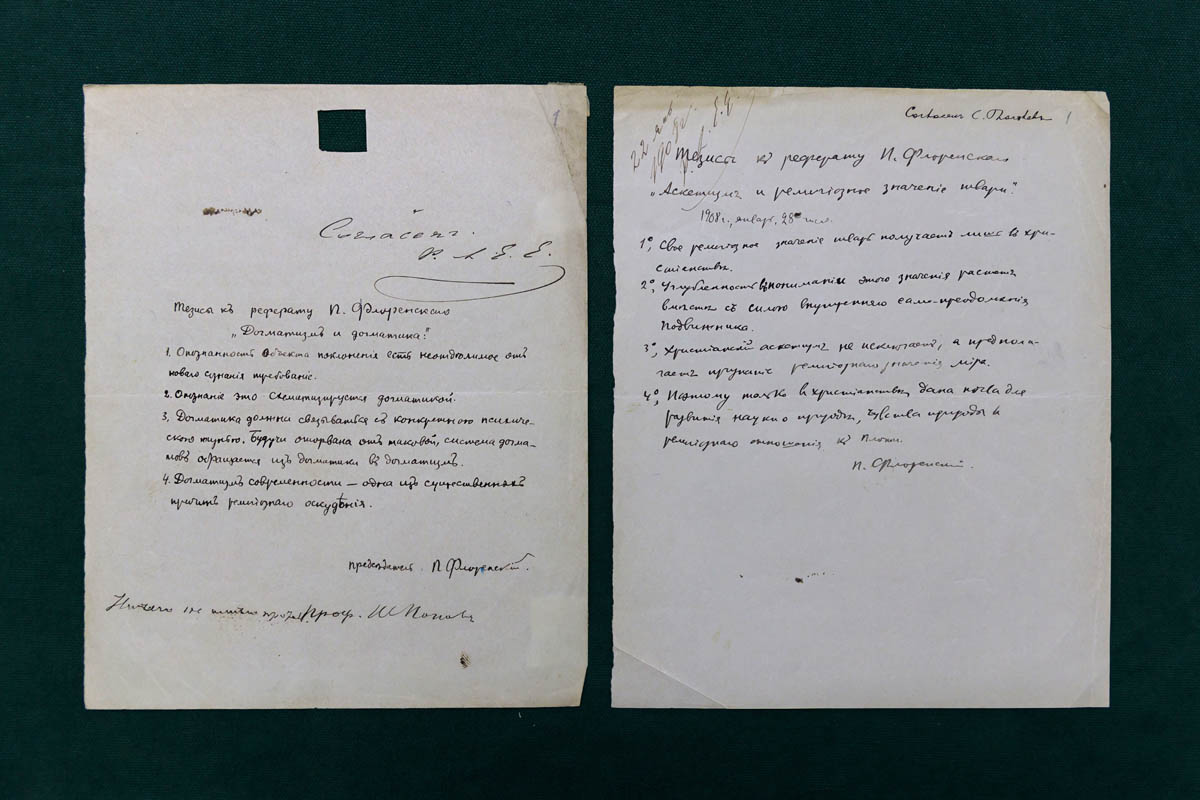 Согласенъ.
Р. А. Е. Е.
Тезисы къ реферату П. Флоренскаго
„Догматизмъ и догматика".
1. Опознанность объекта поклоненія есть неотдѣлимое отъ
новаго сознанія требованіе.
2. Опознаніе это схематизируется догматикой.
3. Догматика должна связываться съ конкретною психиче-
скою жизнью. Будучи оторвана отъ таковой, система догма-
товъ обращается изъ догматики въ догматизмъ.
4. Догматизмъ современности — одна изъ существенныхъ
причинъ религіознаго оскудѣнія.
П. Флоренскій.
Ничего не имѣю проф. И Поповъ
22 янв
1908г.
Е. Е.
Согласенъ С. 1
Тезисы къ реферату П. Флоренскаго
„Аскетизмъ и религіозное значеніе твари".
1908 г., январь, 28
1°, Свое религіозное значеніе тварь получаетъ лишь въ хри-
стіанствѣ.
2°, Углубленность въ пониманіи этого значенія растетъ
вмѣстѣ съ силою внутренняго само-преодолѣнія
подвижника.
3°, Христіанскій аскетизмъ не исключаетъ, а предпола-
гаетъ признаніе религіознаго значенія міра.
4°, Поэтому только въ христіанствѣ дана почва для
развитія науки о природѣ, чувства природы и
религіознаго отношенія къ плоти.
П. Флоренскій.